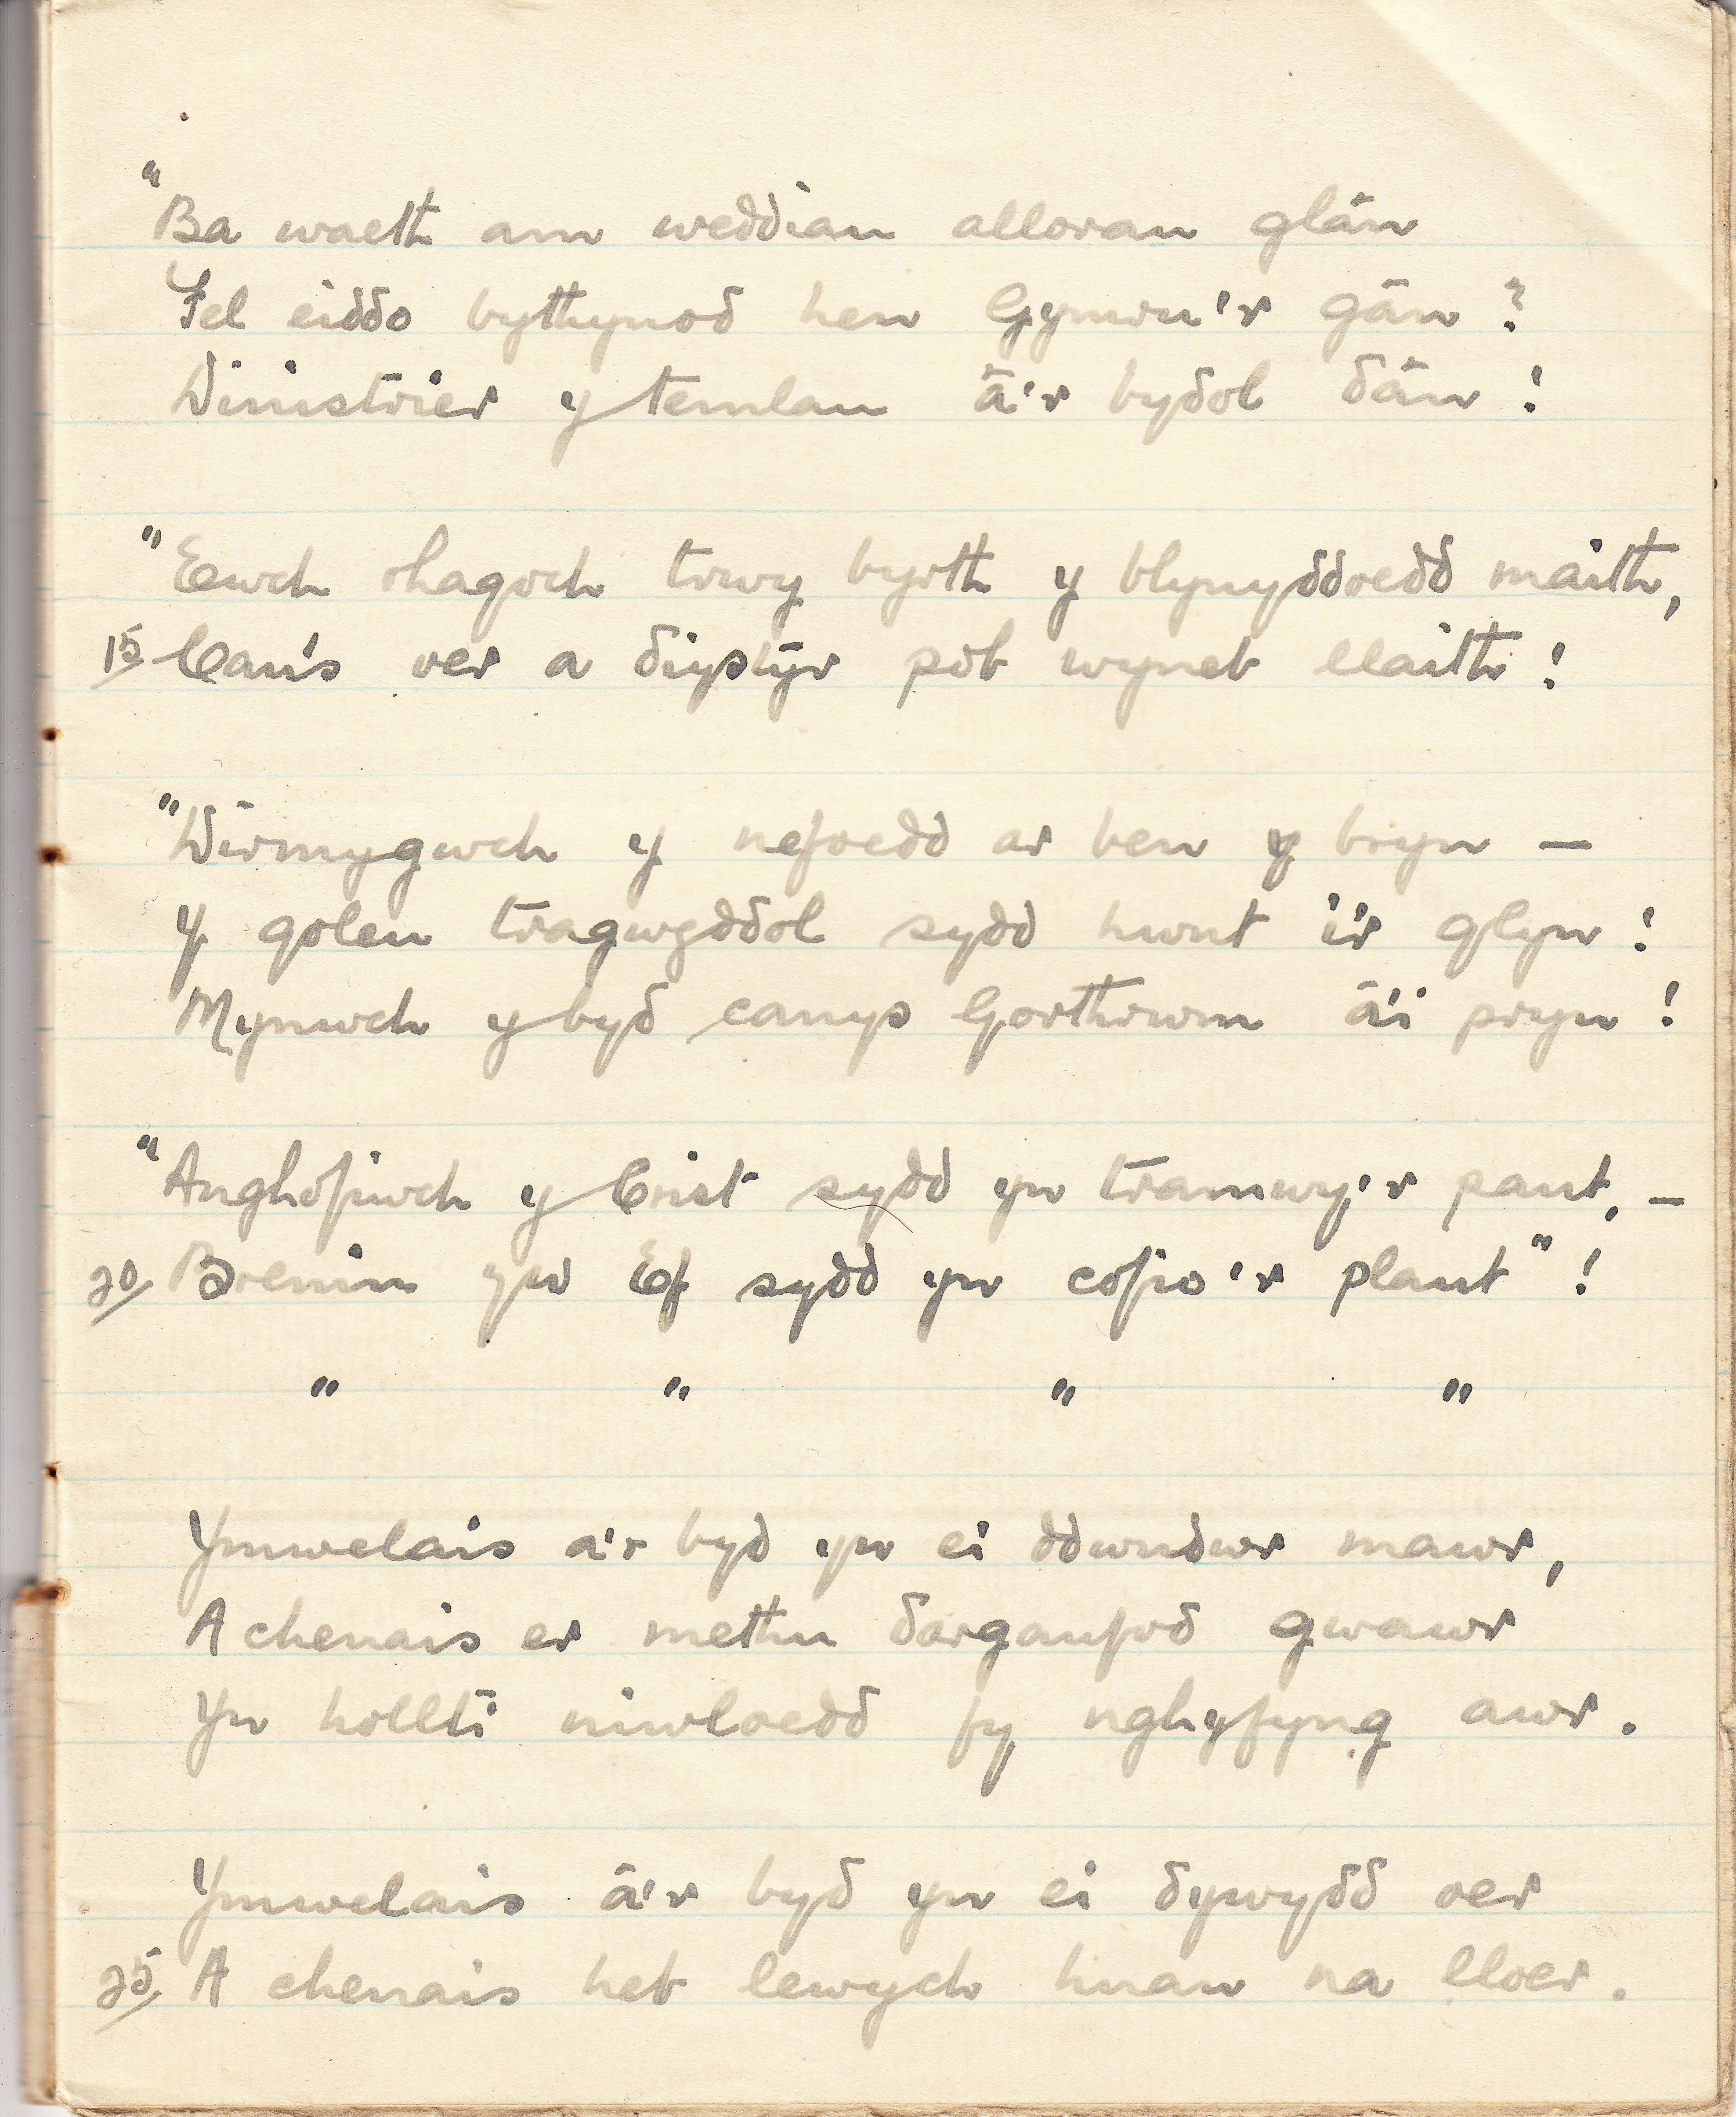 "Ba waeth am weddïau allorau glân
Fel eiddo bythynod hen Gymru'r gân?
Dinistrier y temlau â'r bydol dân!
"Ewch rhagoch trwy byrth y blynyddoedd maith,
15 Can's oer a diystyr pob wyneb llaith!
"Dirmygwch y nefoedd ar ben y bryn —
Y goleu tragwyddol sydd hwnt i'r glyn!
Mynwch y byd canys Gorthrwm â'i pryn!
"Anghofiwch y Crist sydd yn tramwy'r pant, —
20 Brenin yw Ef sydd yn cofio'r plant"!
" " " "
Ymwelais a'r byd yn ei ddwndwr mawr,
A chenais er methu darganfod gwawr
Yn hollti niwloedd fy nghyfyng awr.
Ymwelais â'r byd yn ei dywydd oer
25 A chenais heb lewych huan na lloer.